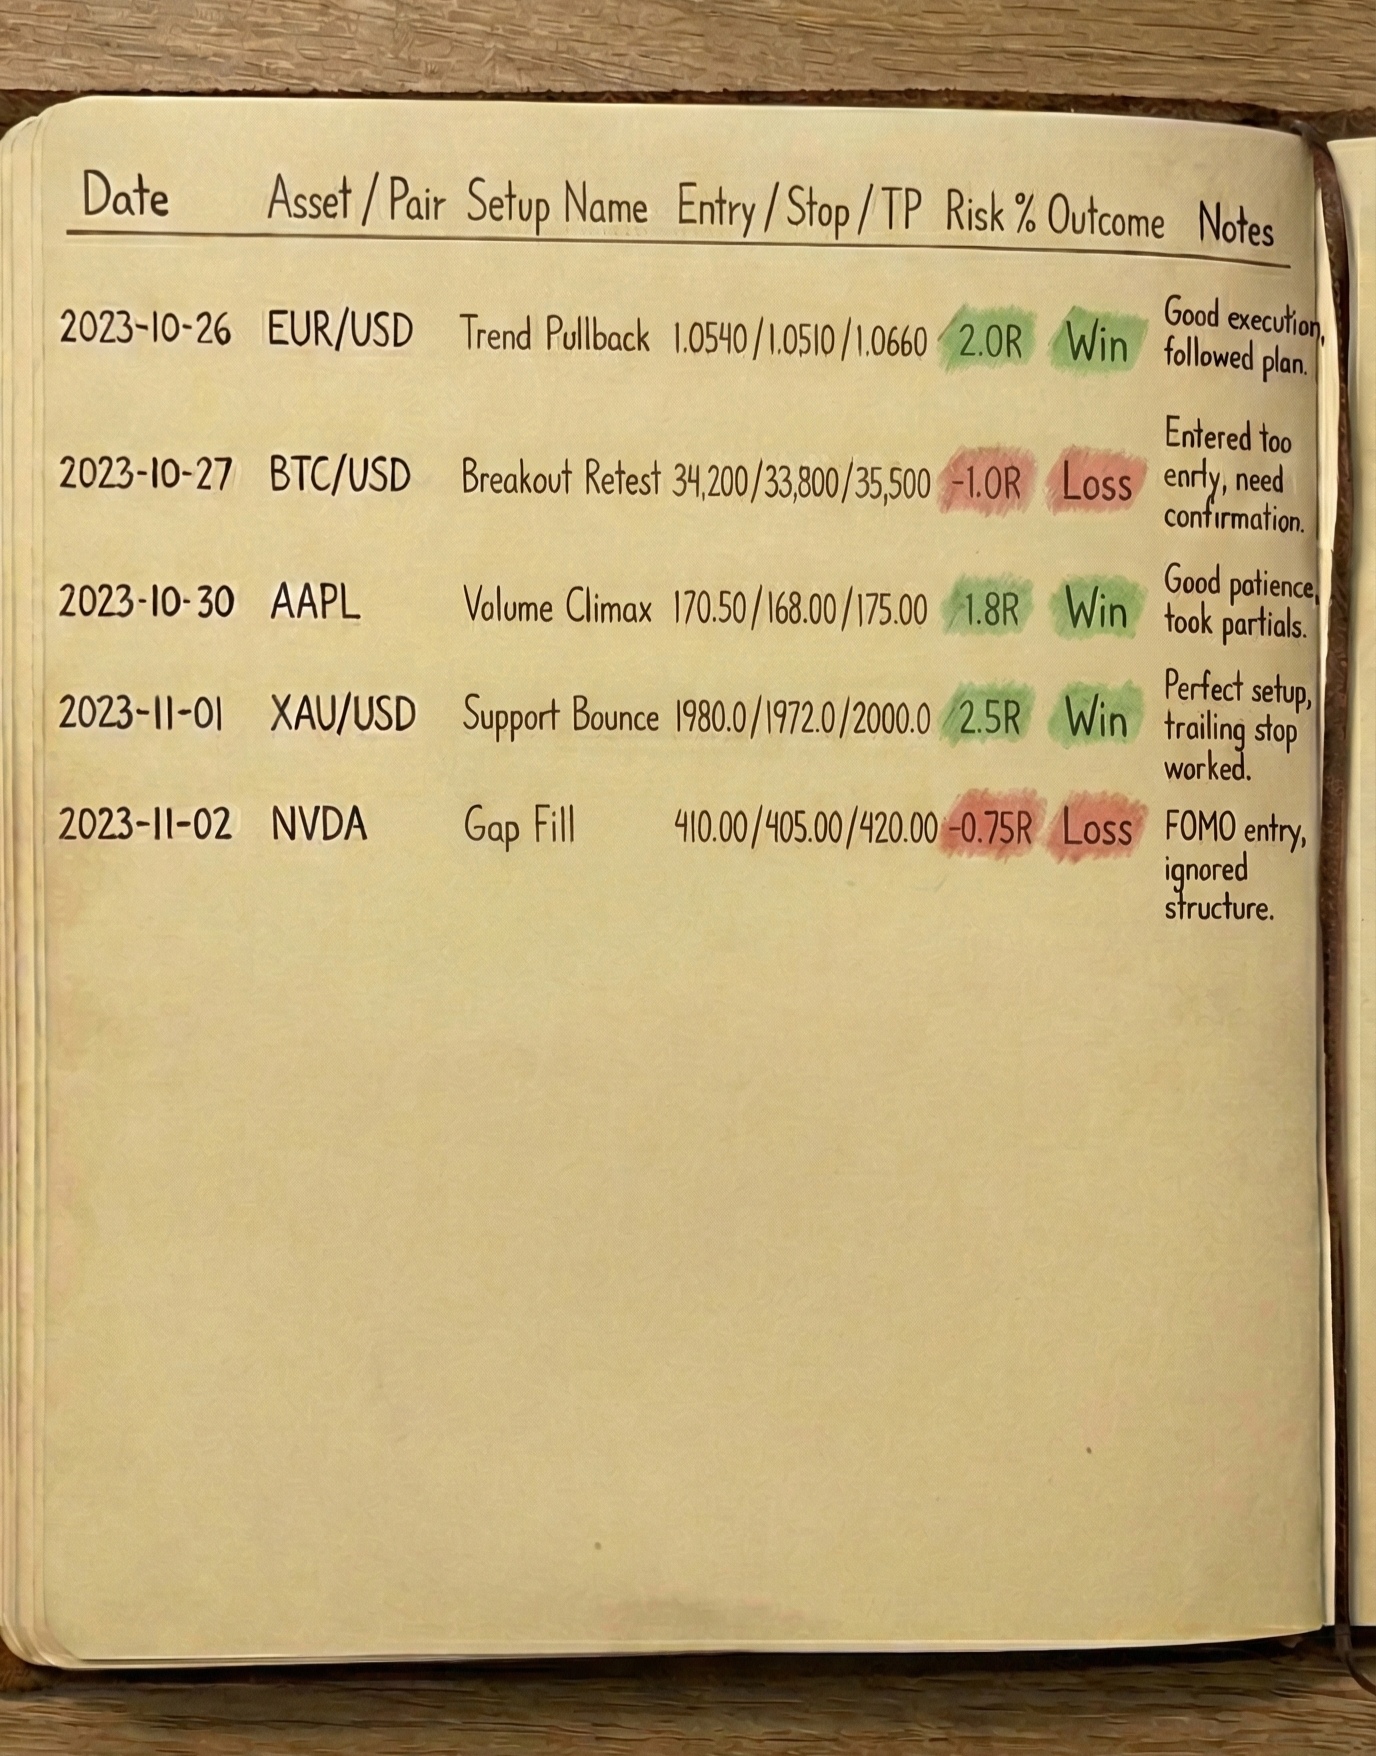 Date Asset / Pair Setup Name Entry / Stop / TP Risk % Outcome Notes
2023-10-26 EUR/USD Trend Pullback 1.0540/1.0510/1.0660 2.0R Win Good execution,
followed plan.
2023-10-27 BTC/USD Breakout Retest 34,200/33,800/35,500 -1.0R Loss Entered too
enrty, need
confirmation.
2023-10-30 AAPL Volume Climax 170.50/168.00/175.00 1.8R Win Good patience,
took partials.
2023-11-01 XAU/USD Support Bounce 1980.0/1972.0/2000.0 2.5R Win Perfect setup,
trailing stop
worked.
2023-11-02 NVDA Gap Fill 410.00/405.00/420.00 -0.75R Loss FOMO entry,
ignored
structure.